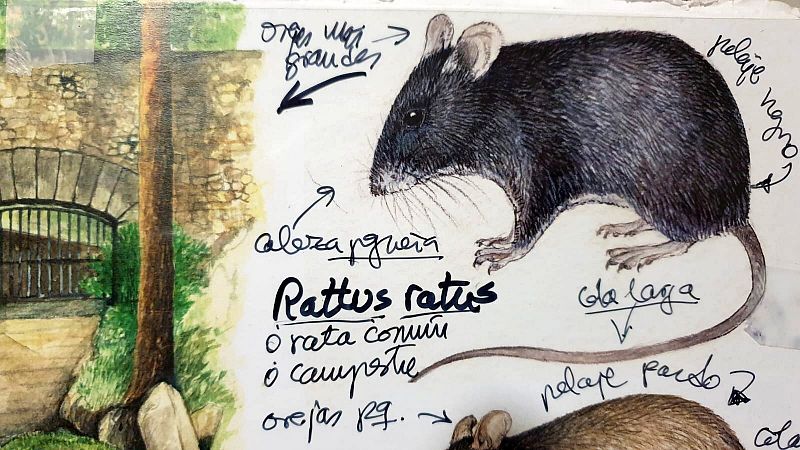 orejas mas
grandes
pelaje negro
cabeza pqueña
Rattus ratus
ó rata común
ó campestre
cola larga
pelaje pardo
orejas pq.
cola